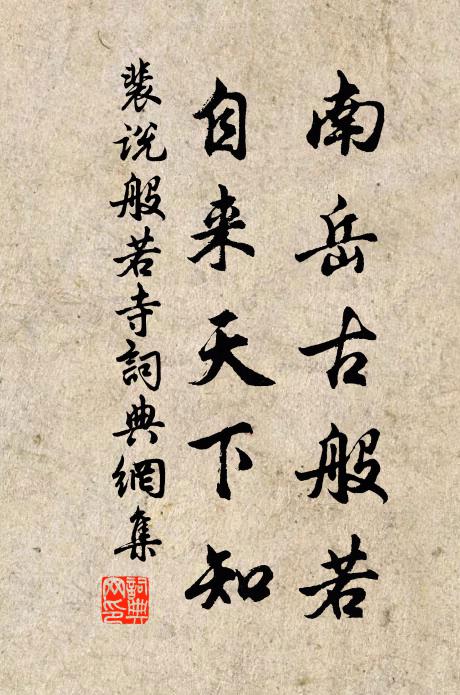 南岳古般若
自来天下知
裴说般若寺詞典網集
詞典网印